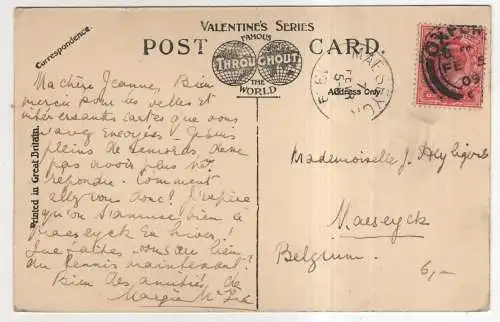 VALENTINE'S SERIES
FAMOUS
THROUGHOUT
THE
WORLD
POST CARD.
Correspondence.
Address Only
Printed in Great Britain.
OXFORD
FE 5
09
MAESEYCK
Ma chère Jeanne, Bien
merçi pour les belles et
intéressantes cartes que vous
avez envoyées – Je suis
pleins de remords, de ne
pas avoir plus
répondre. Comment
allez vous donc! J'espère
qu'on s'amuse bien à
Maeseyck en hiver!
Que faites vous au lieu
du Tennis maintenant?
Bien des amitiés de
Margie
Mademoiselle J.
Maeseyck
Belgium.
6,-